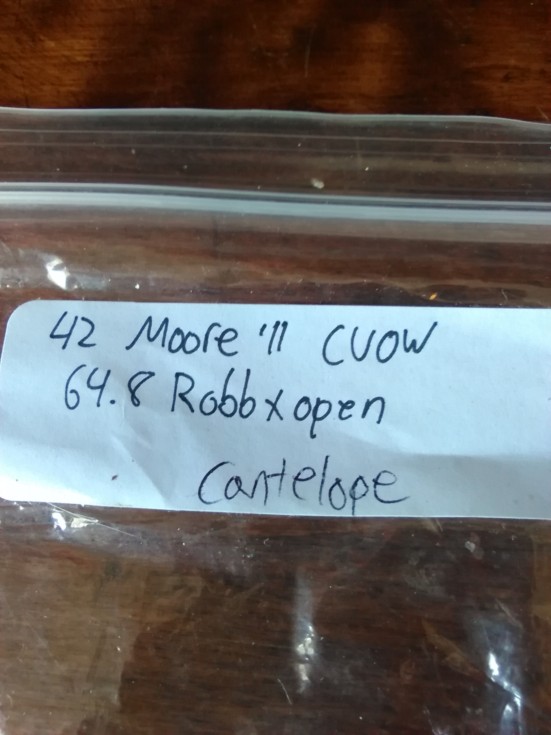 42 Moore '11 CUOW
64.8 Robb x open
Cantelope